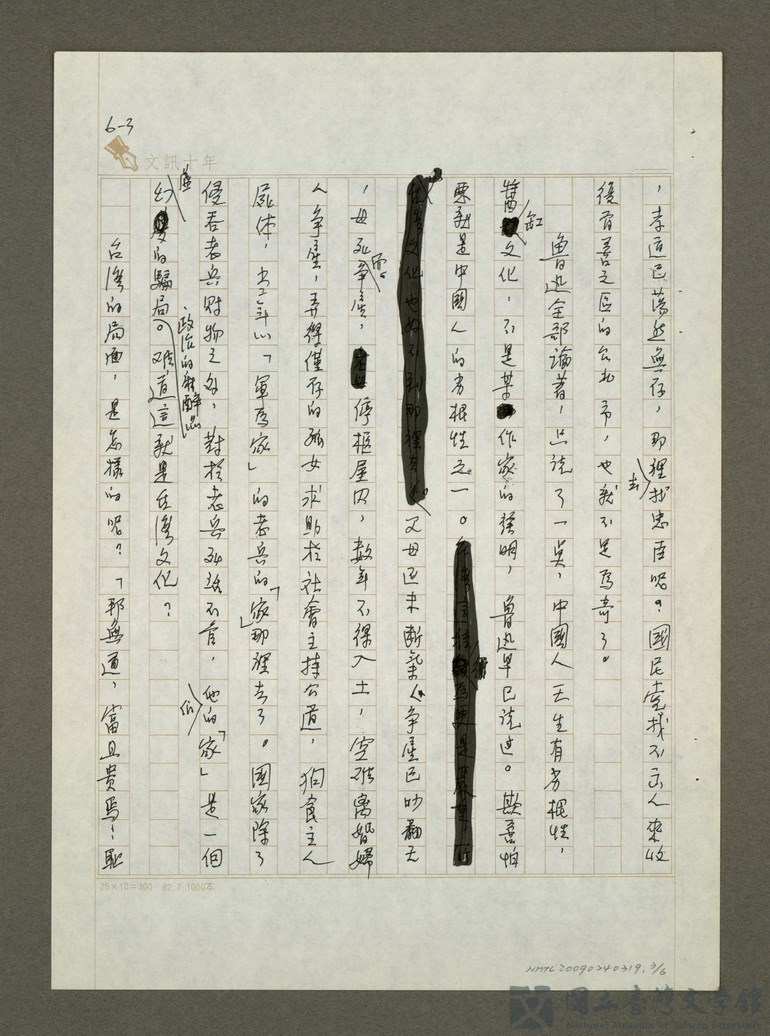 6-3
文訊十年
，孝道已蕩然無存，那裡去找忠臣呢？國民黨找不出人來收
復首善之區的台北市，也就不足為奇了。
魯迅全部論著，只說了一點，中國人天生有劣根性，
醬缸文化，不是某作家的發明，魯迅早已說過。欺善怕
惡就是中國人的劣根性之一。
父母還未斷氣，爭產已吵翻天
，母死爭產，停柩屋內，數年不得入土，空難離婚婦
人爭產，弄得僅存的孤女求助於社會主持公道，狗食主人
屍體，當年以「軍為家」的老兵的「家」那裡去了。國家除了
侵吞老兵財物之外，對於老兵死活不管，他們的「家」是一個
虛幻的騙局。政治的麻醉品，難道這就是台灣文化？
台灣的局面，是怎樣的呢？「邦無道，富且貴焉；恥
25×10=300 82.7.1000本
NMTL20090240319, 3/6
國立臺灣文學館
National Museum of Taiwan Literature